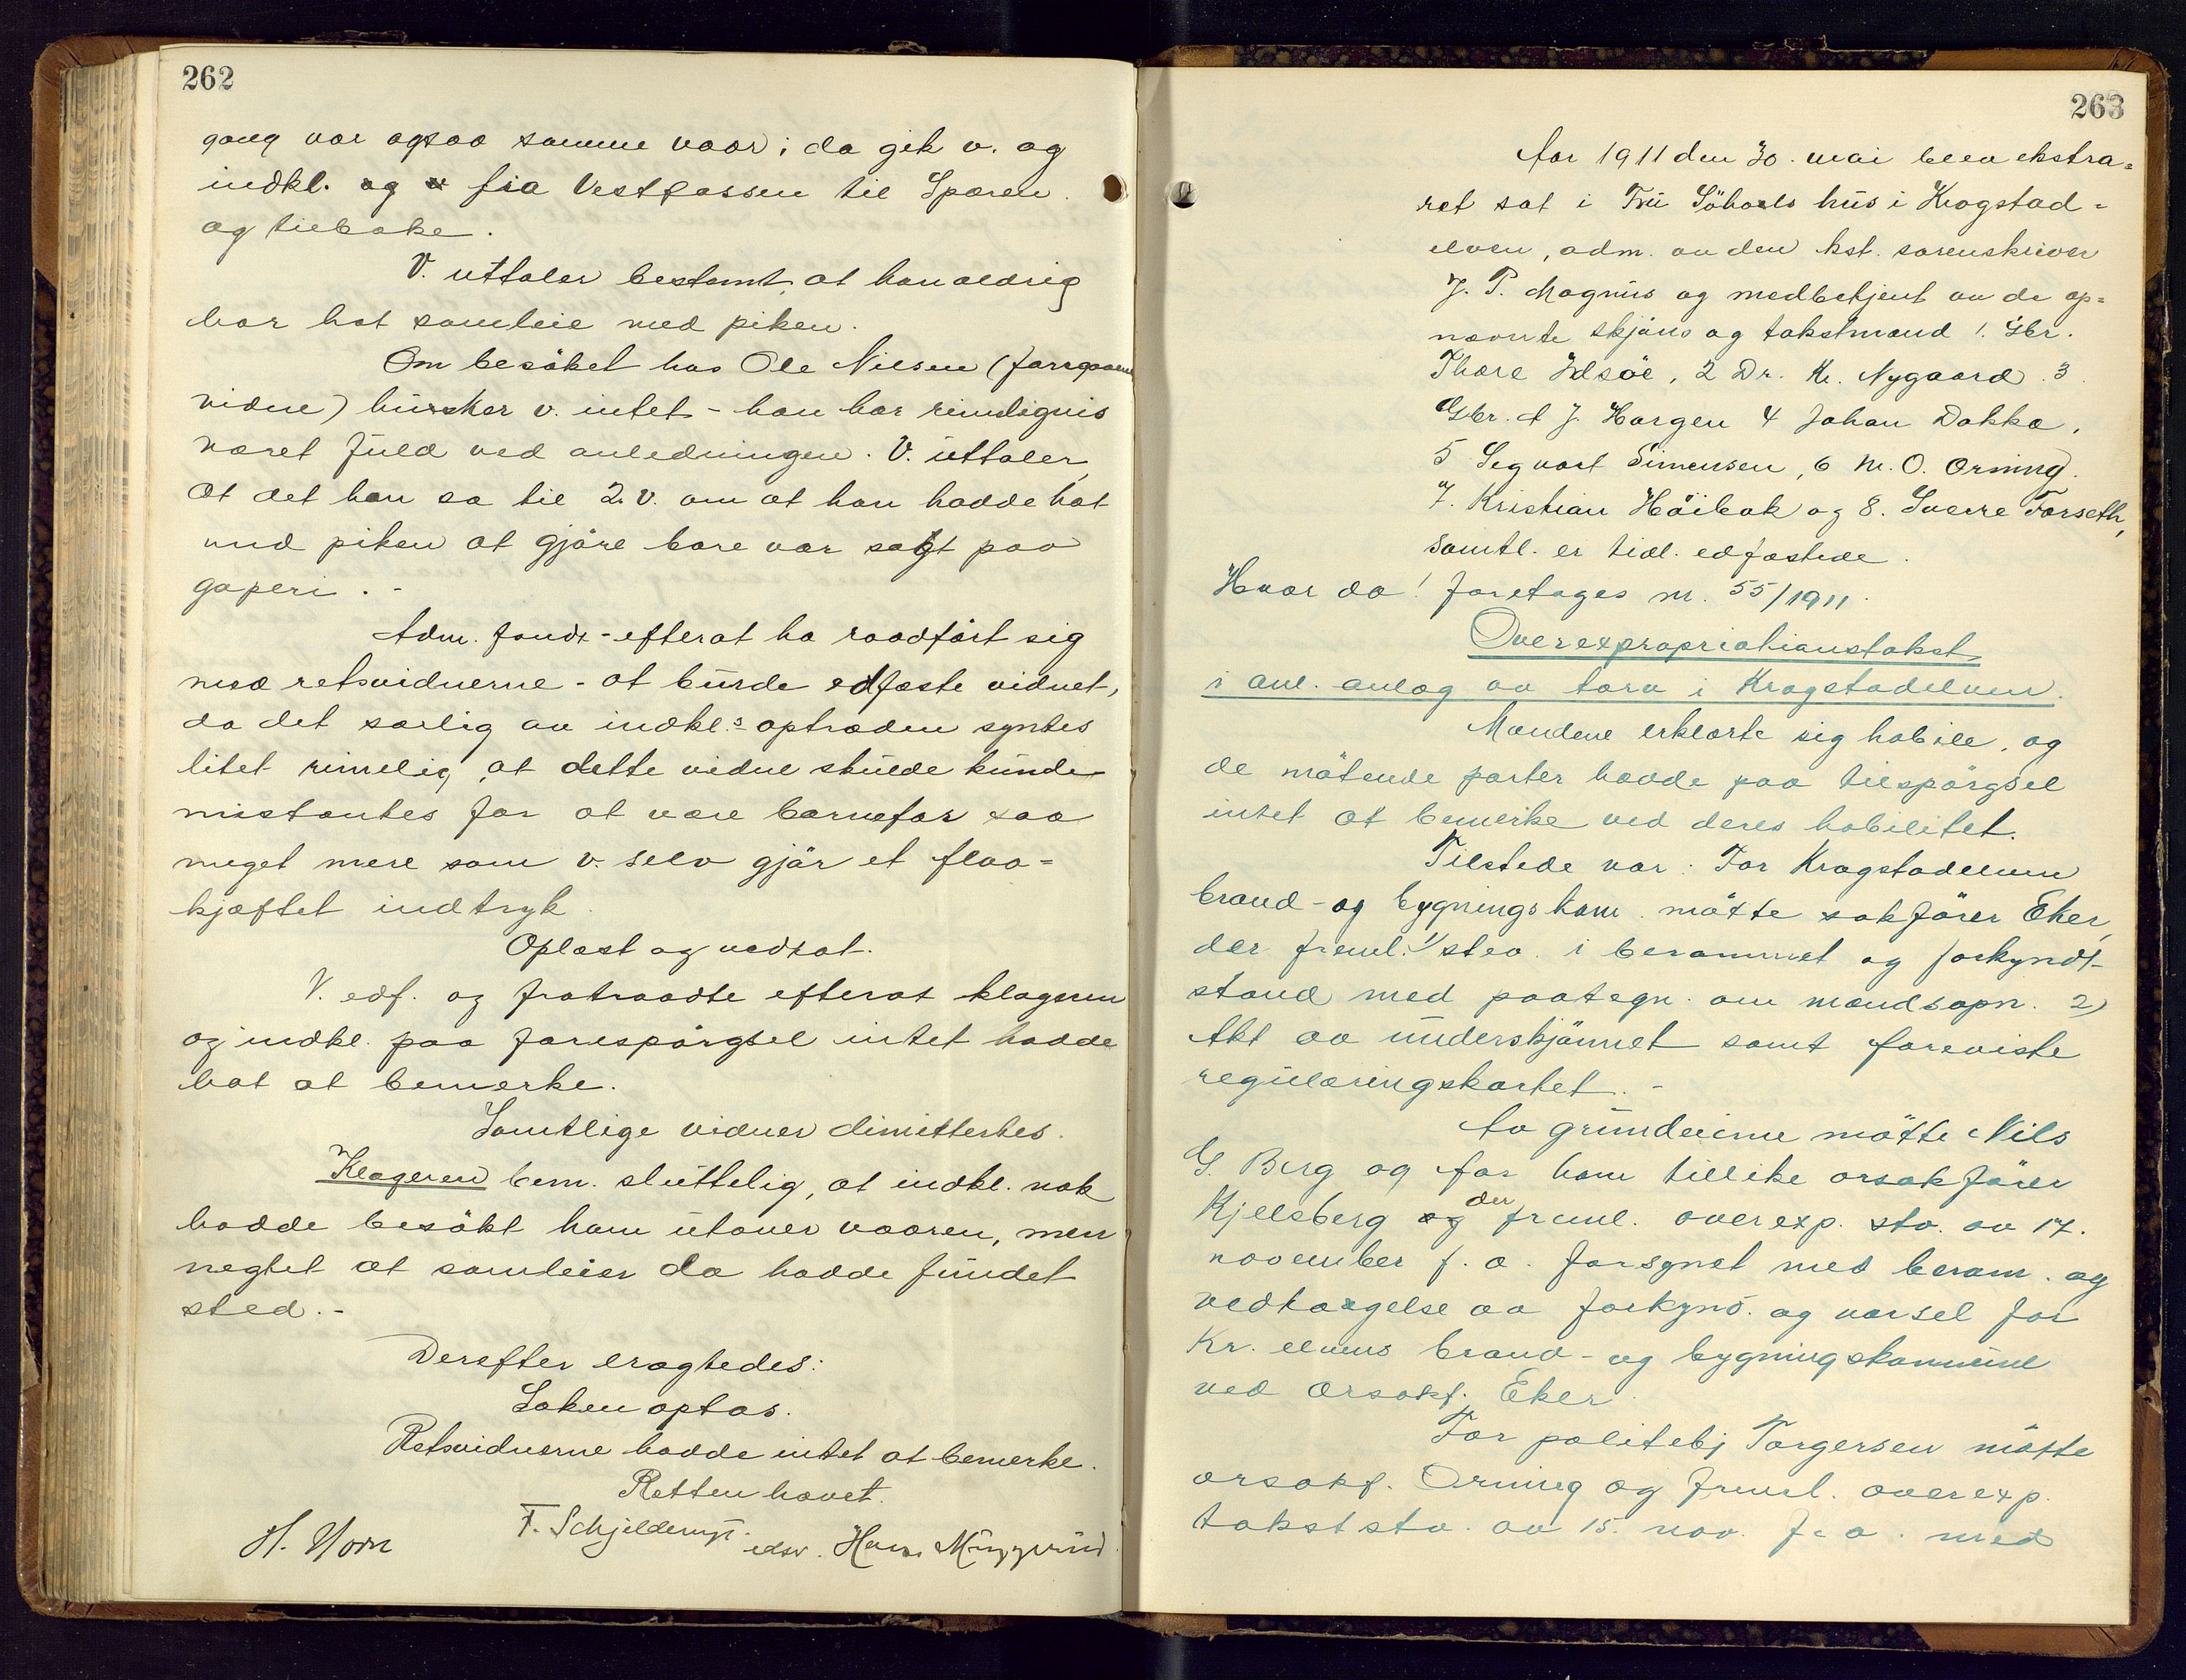 262
gang var ogsaa samme vaar; da gik v. og
indkl. og fra Vestfossen til Sporen
og tilbake.
V. uttaler bestemt, at han aldrig
har hat samleie med piken.
Om besöket hos Ole Nilsen (forrgaaende
vidne) husker v. intet - han har rimeligvis
været fuld ved anledningen. V. uttaler,
at det han sa til 2. v. om at han hadde hat
med piken at gjöre bare var sagt paa
gaperi. -
Adm. fandt - efterat ha raadfört sig
med retsvidnerne - at burde edfæste vidnet,
da det særlig av indkl.s optræden syntes
litet rimelig, at dette vidne skulde kunde
mistænkes for at være barnefar saa
meget mere som v. selv gjör et flaa=
kjæftet indtryk.
Oplæst og vedtat.
V. edf. og fratraadte efterat klageren
og indkl. paa forespörgsel intet hadde
hat at bemerke.
Samtlige vidner dimittertes.
Klageren bem. sluttelig, at indkl. nok
hadde besökt ham utover vaaren, men
negtet at samleier da hadde fundet
sted. -
Derefter eragtedes:
Saken optas.
Retsvidnerne hadde intet at bemerke.
Retten hævet.
H. Horn F. Schjelderup edsv. Hans
263
Aar 1911 den 30. mai blev ekstra=
ret sat i Fru Söhols hus i Krogstad=
elven, adm. av den kst. sorenskriver
J. P. Magnus og medbetjent av de op=
nævnte skjöns og takstmænd 1. Gbr.
Thore Idsöe, 2 Dr. Kr. Nygaard. 3.
Gbr. A J. Horgen 4 Johan Dokka,
5 Segvart Simensen, 6 M. O. Orning.
7. Kristian Höibak og 8. Sverre Forseth,
samtl. er tidl. edfæstede.
Hvor da! foretages nr. 55/1911.
Overexpropriationstakst
i anl. anlæg av torv i Krogstadelven.
Mændene erklærte sig habile, og
de mötende parter hadde paa tilspörgsel
intet at bemerke ved deres habilitet.
Tilstede var: For Krogstadelvens
brand- og bygningskom. mötte sakförer Eker,
der freml. 1/ stev. i berammet og forkyndt
stand med paategn. om mændsopn. 2)
Akt av underskjönnet samt foreviste
reguleringskartet. -
Av grundeierne mötte Nils
G. Berg og for ham tillike orsakförer
Kjelsberg og der freml. overexp. stv. av 17.
november f. a. forsynet med beram. og
vedtagelse av forkynd. og varsel for
Kr. elvens brand- og bygningskommune
ved orsakf. Eker.
For politibj Torgersen mötte
orsakf. Orning og freml. overexp.
takststv. av 15. nov. f. a. med